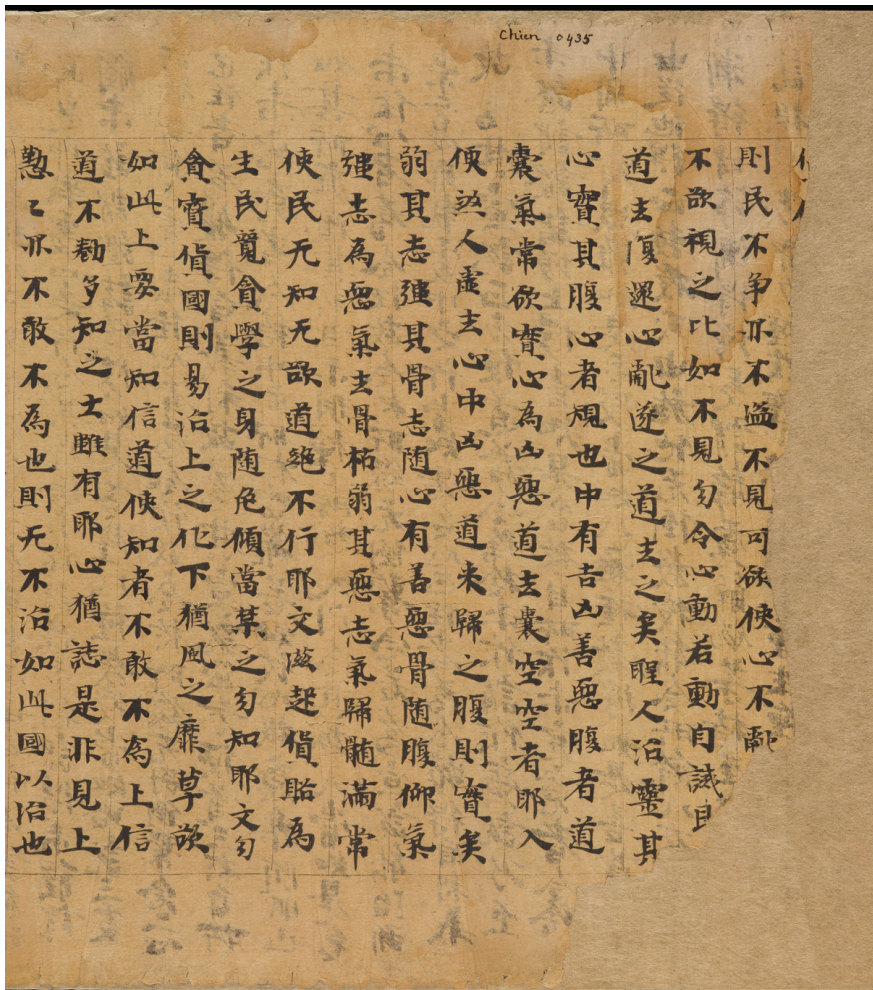 Chien 0435
則民不争亦不盗不見可欲使心不亂
不欲視之比如不見勿令心動若動自誡
道去復還心亂遂之道去之矣聖人治靈其
心實其腹心者規也中有吉凶善惡腹者道
囊氣常欲實心為凶惡道去囊空空者耶入
便煞人虛去心中凶惡道来歸之腹則實矣
弱其志强其骨志随心有善惡骨随腹仰氣
强志為惡氣去骨枯弱其惡志氣歸髓滿常
使民无知无欲道絶不行耶文滋起貨賂為
生民競貪學之身随危傾當禁之勿知耶文勿
貪寶貨國則易治上之化下猶風之靡草欲
如此上要當知信道使知者不敢不為上信
道不勌多知之士雖有耶心猶誌是非見上
懃〻亦不敢不為也則无不治如此國以治也